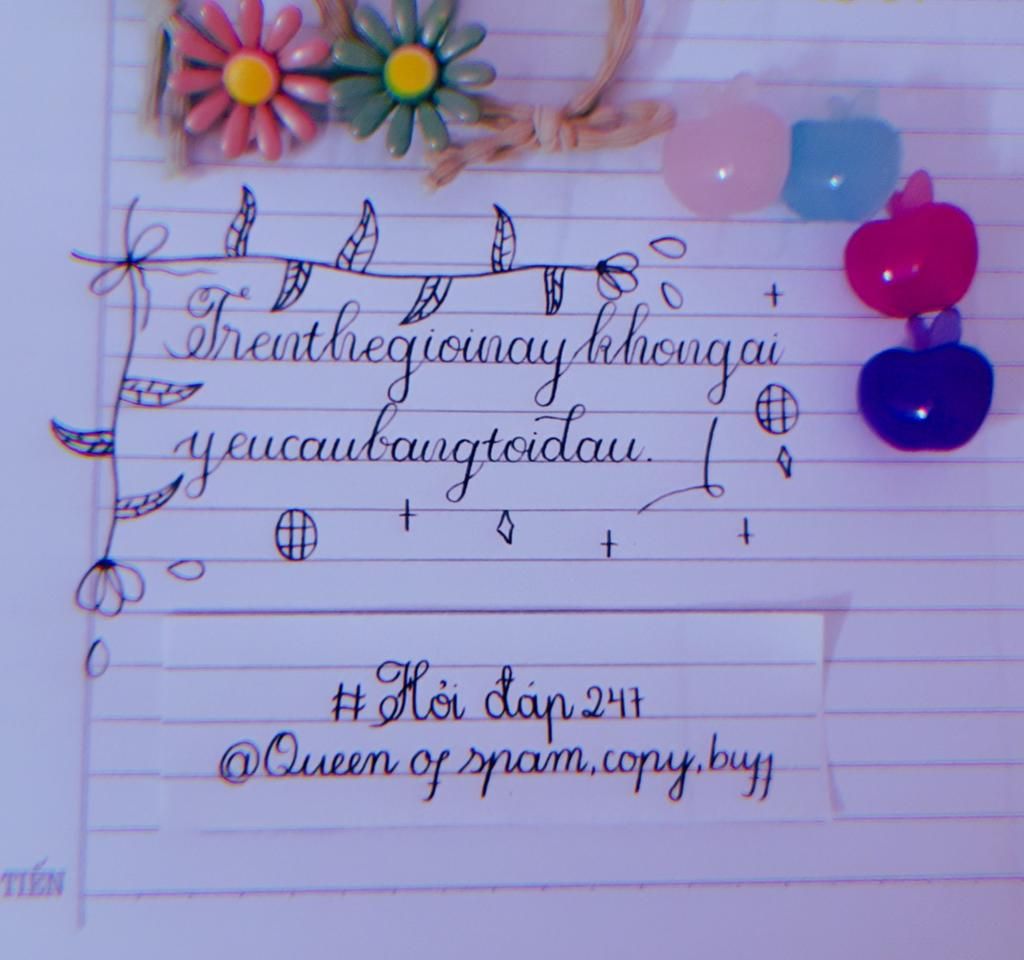 Trenthegioinaykhongai
yeucaubangtoiđau.
#Hỏi đáp 247
@Queen of spam,copy,buff
TIẾN